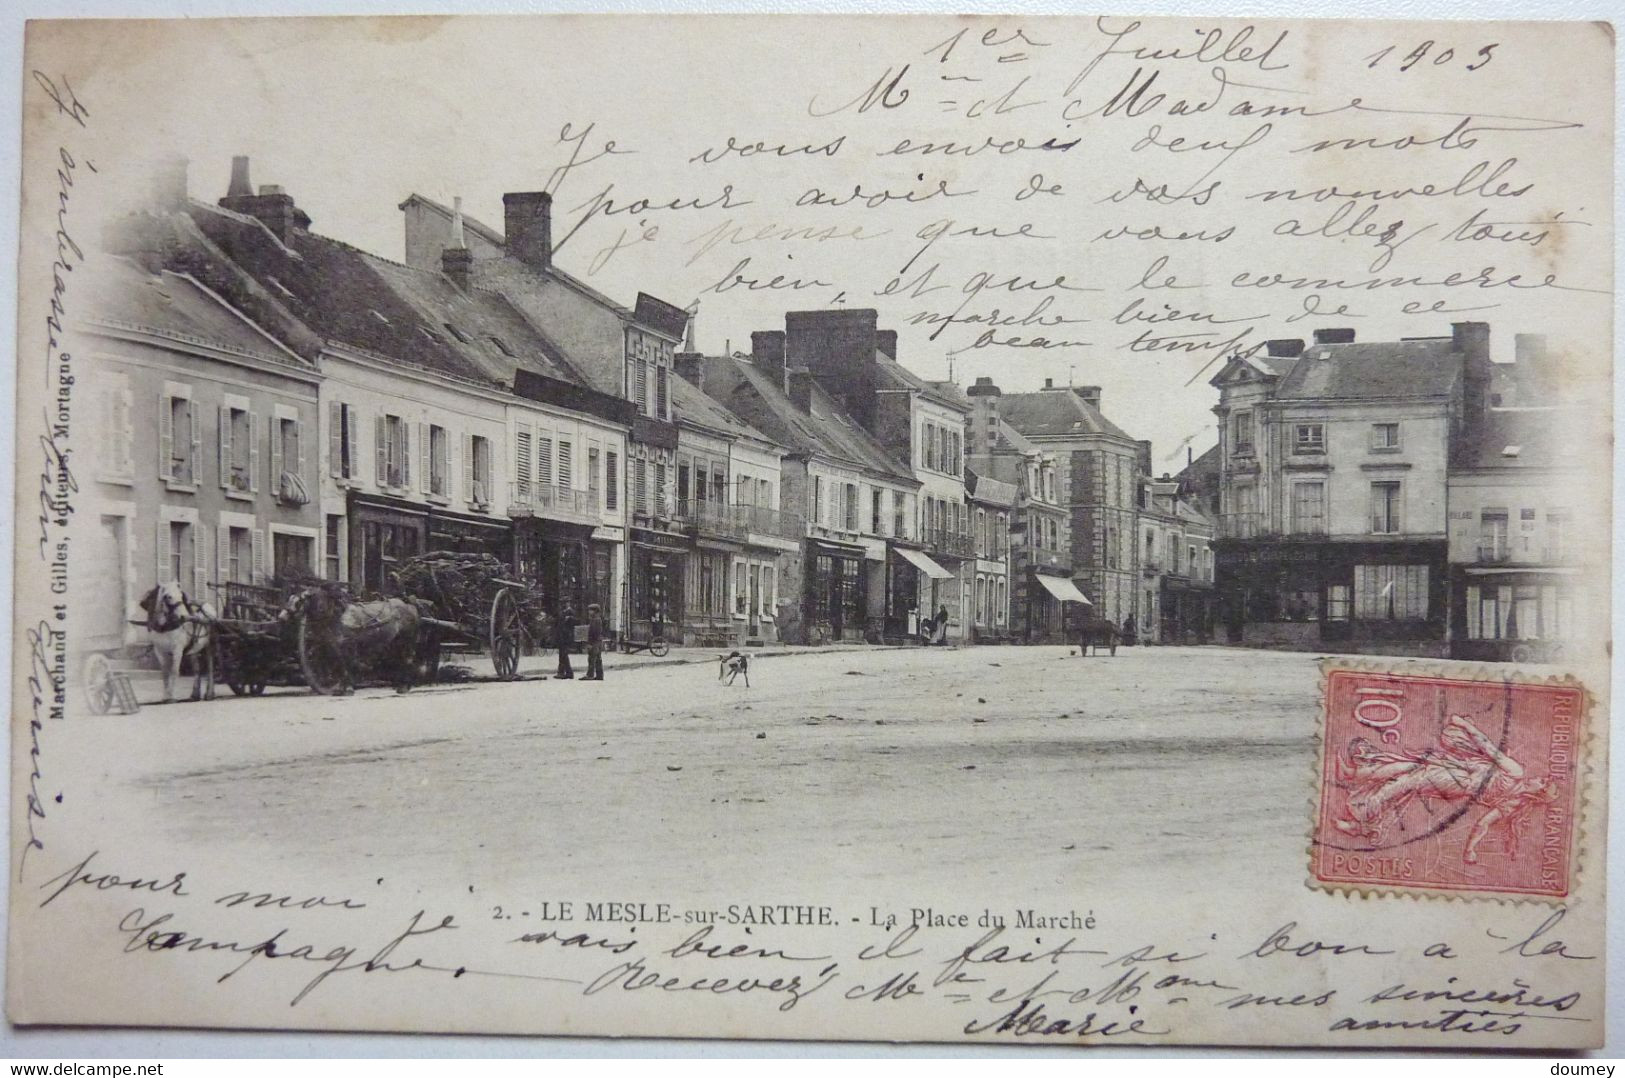 1er Juillet 1903
Mr et Madame
Je vous envois deux mots
pour avoir de vos nouvelles
je pense que vous allez tous
bien, et que le commerce
marche bien de ce
beau temps
J'embrasse bien Louise
Marchand et Gilles, éditeurs, Mortagne
2. - LE MESLE-sur-SARTHE. - La Place du Marché
pour moi je vais bien, il fait si bon à la
Campagne. Recevez Mr et Mme mes sincères
Marie amitiés
10c
RÉPUBLIQUE FRANÇAISE
POSTES
www.delcampe.net
doumey